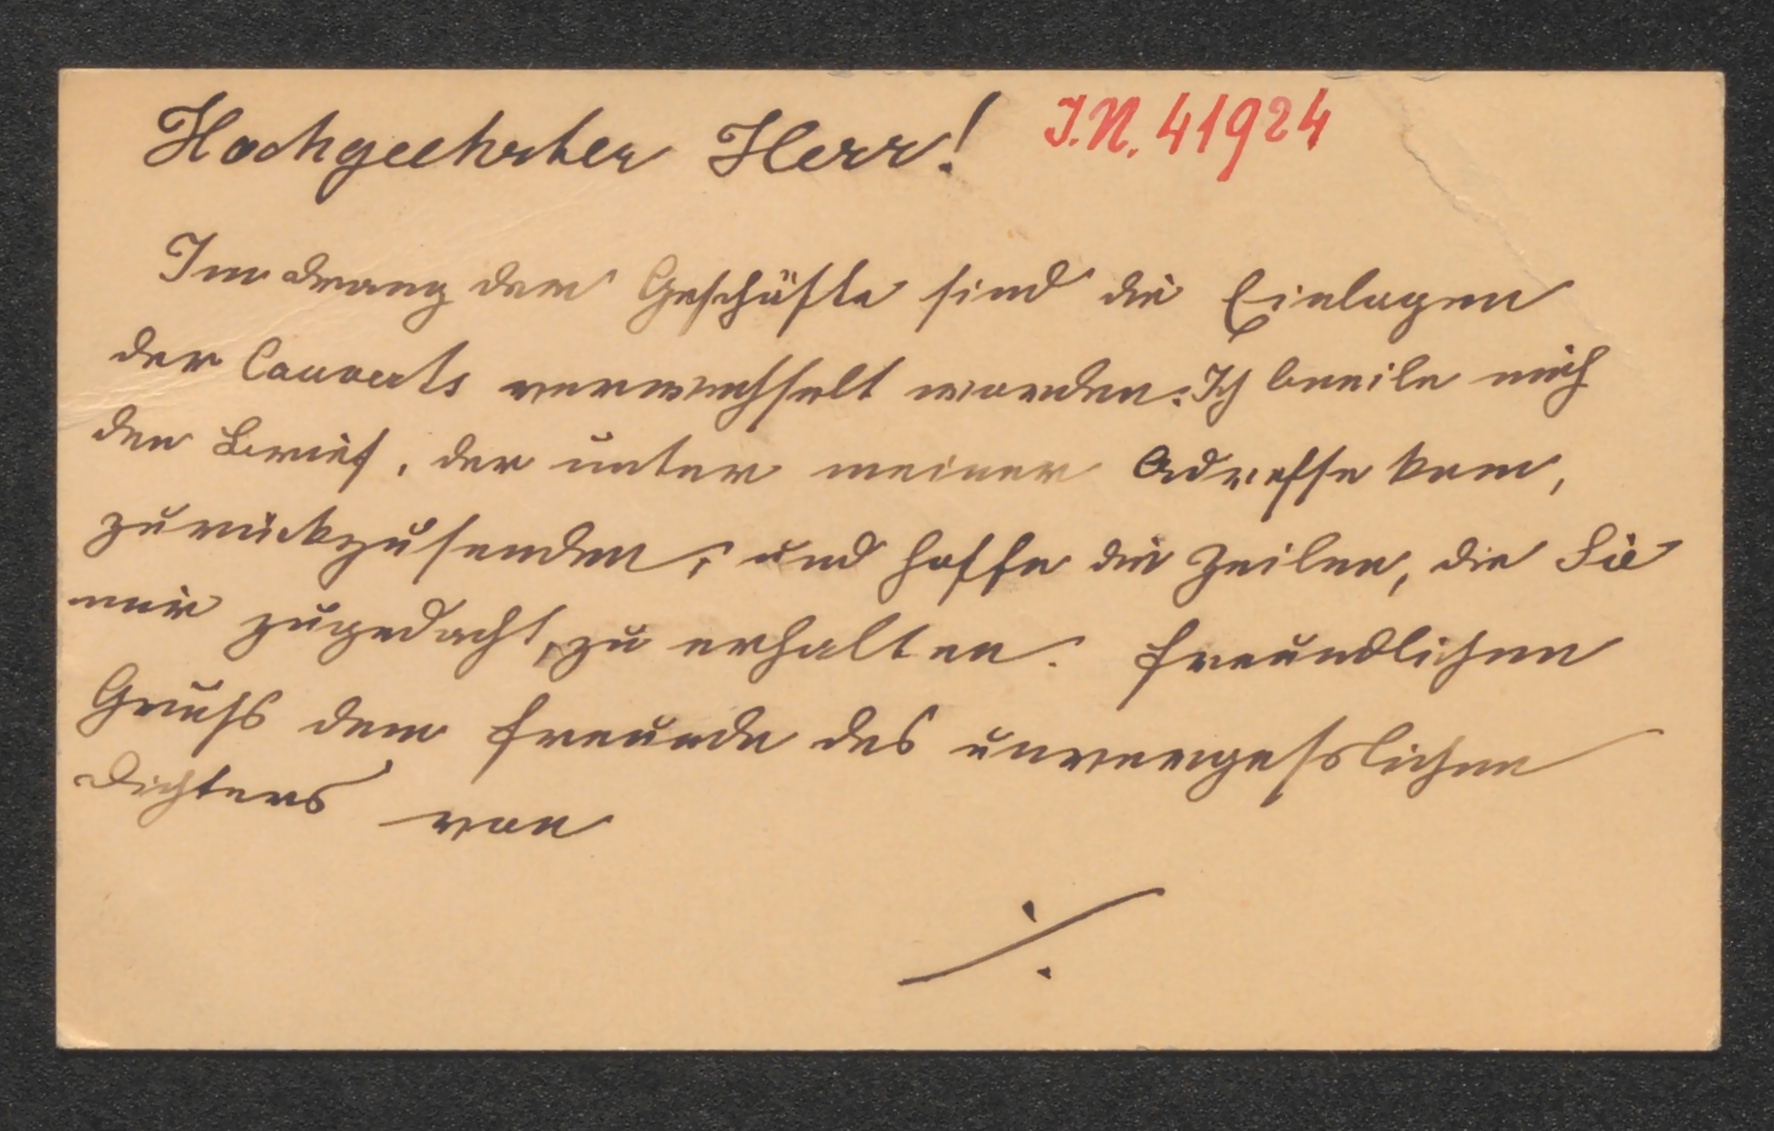 Hochgeehrter Herr! I.N. 41924
Im Drang der Geschäfte sind die Einlagen
der Couverts verwechselt worden. Ich beeile mich
den Brief, der unter meiner Adresse kam,
zurückzusenden, und hoffe die Zeilen, die Sie
mir zugedacht, zu erhalten. Freundlichen
Gruss dem Freunde des unvergesslichen
Dichters von